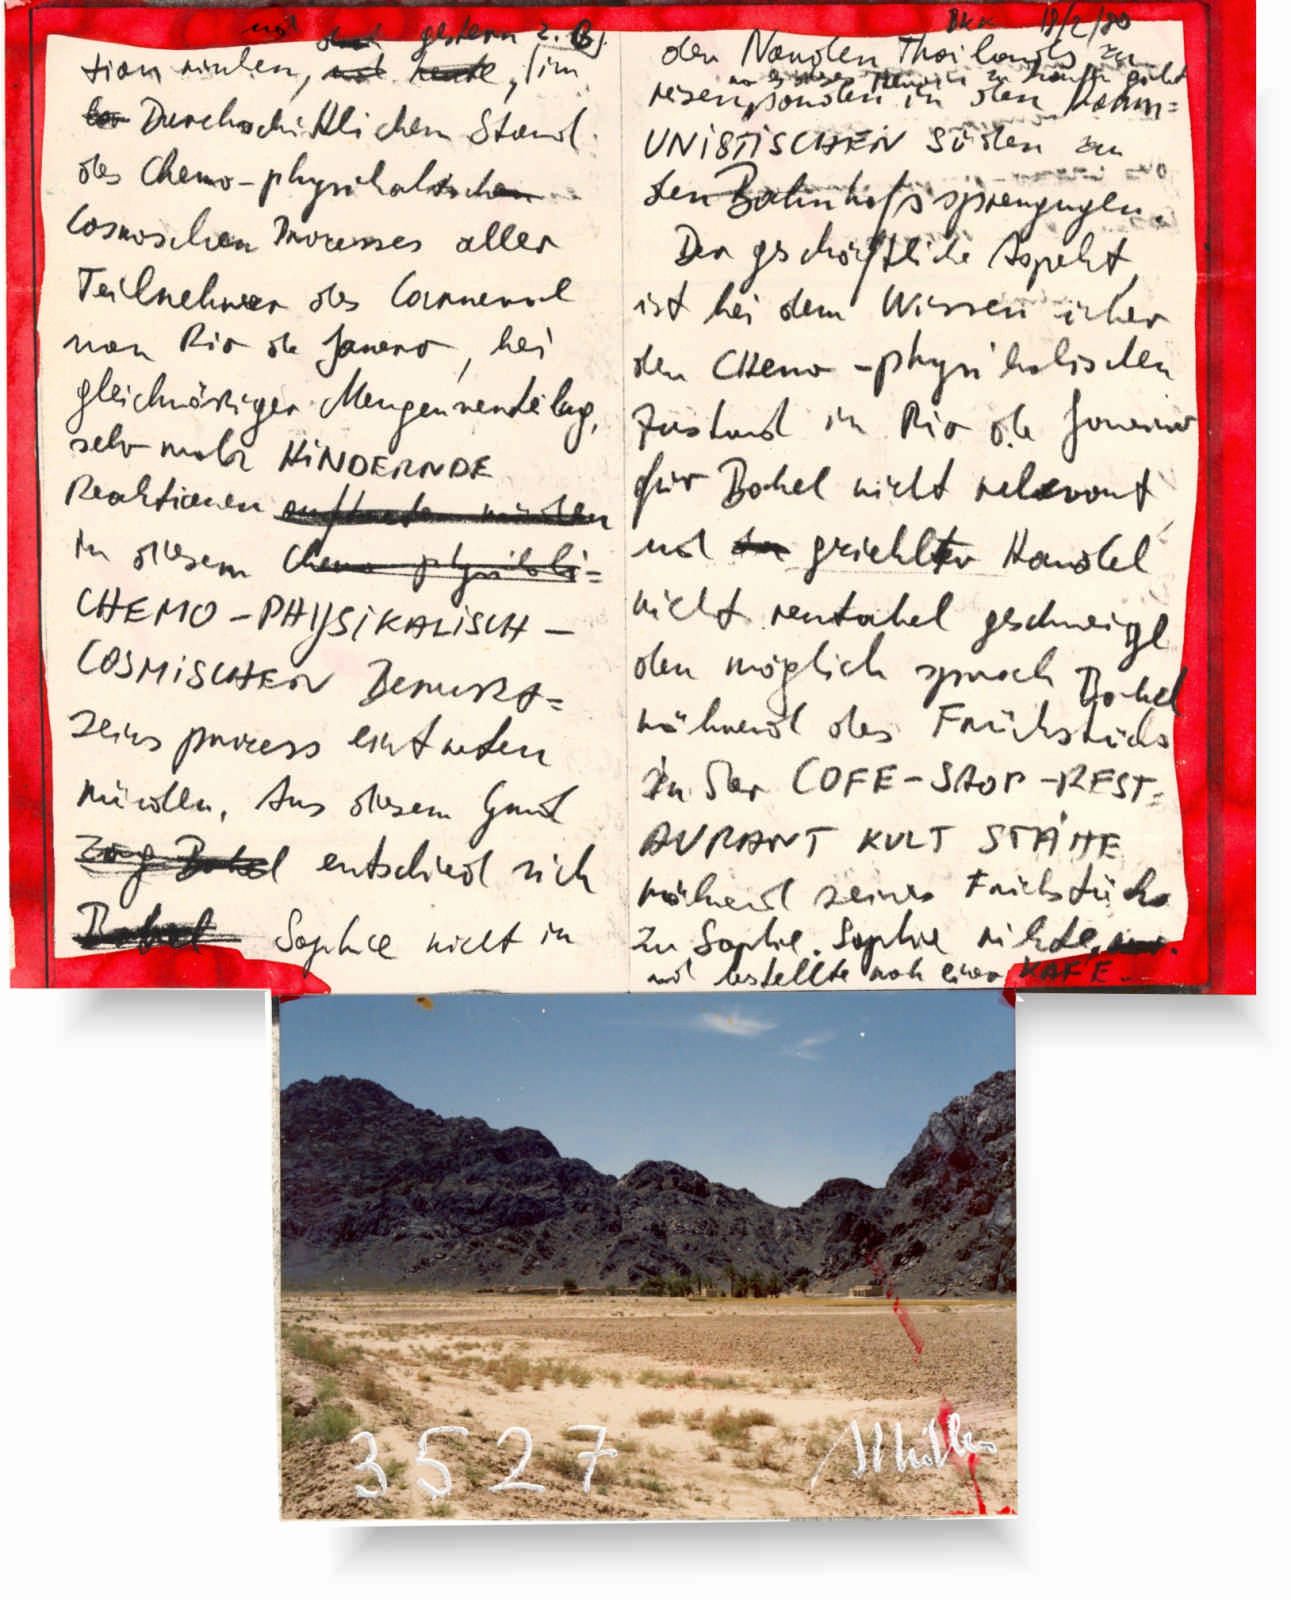 und gestern z. B.
tion rieben, und heute, im
Durchschittlichen Stand
des Chemo-physikalischen
Cosmoschen Processes aller
Teilnehmer des Carneval
von Rio de Janero, bei
gleichmäsiger Mengenverteilug,
sehr wohl HiNDERNDE
Reaktionen auftreten würden
in diesem Chemo physikali=
CHEMO-PHYSiKALiSCH-
COSMiSCHEN Bewust=
seins process eintreten
würden. Aus diesem Grund
Zog Bobel entschied sich
Bobel Sophie nicht in
BKK 18/2/80
den Norden Thailands zu
wo es zu kaufen gibt
reisen, sonden in den Komm=
UNiSTiSCHEN Süden zu
den Bahnhofssprengugen.
Der geschäftliche Aspekt,
ist bei dem Wissen über
den CHemo-physikalischen
Zustand in Rio de Janeiro
für Bobel nicht relevant
und der Handel
nicht rentabel geschweige
den möglich sprach Bobel
während des Frühstücks
in der COFE-SHOP-REST=
AURANT KULT STÄTTE
während seines Frühstücks
zu Sophie. Sophie nickte,
und bestellte noch einen KAFE.
3527